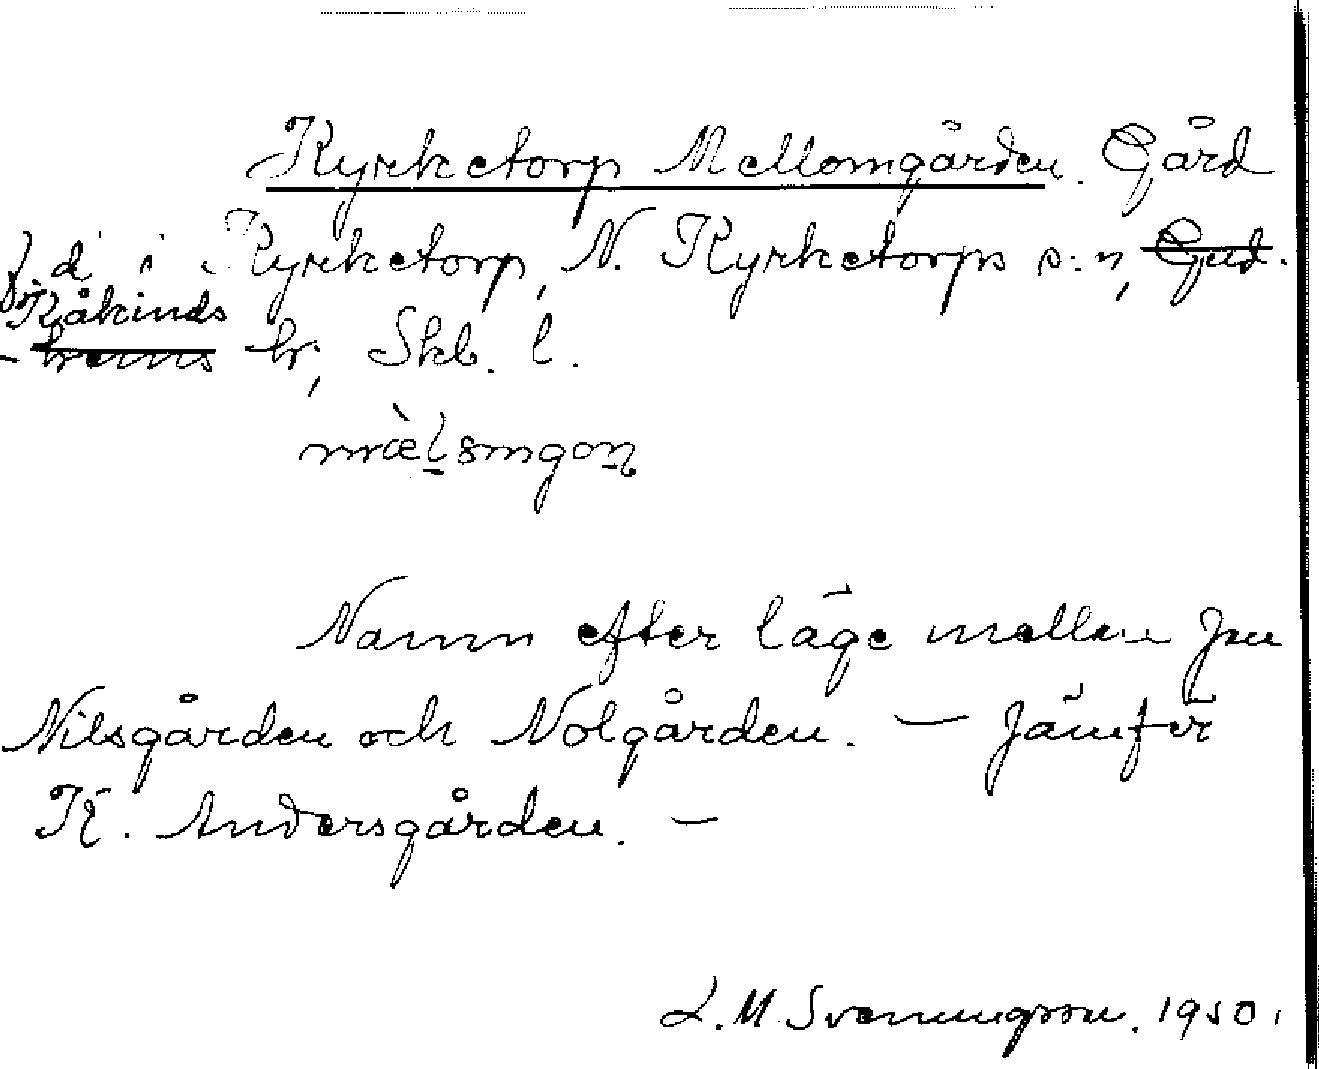 Kyrketorp Mellomgården. Gård
i Kyrketorp, N. Kyrketorps s:n, Gud-
Kåkinds
hems hr, Skb. l.
mæ̀lsmgon
Namn efter läge mellan
Nilsgården och Nolgården. — Jämför
K. Andersgården. —
L. M. Svenungsson. 1950.